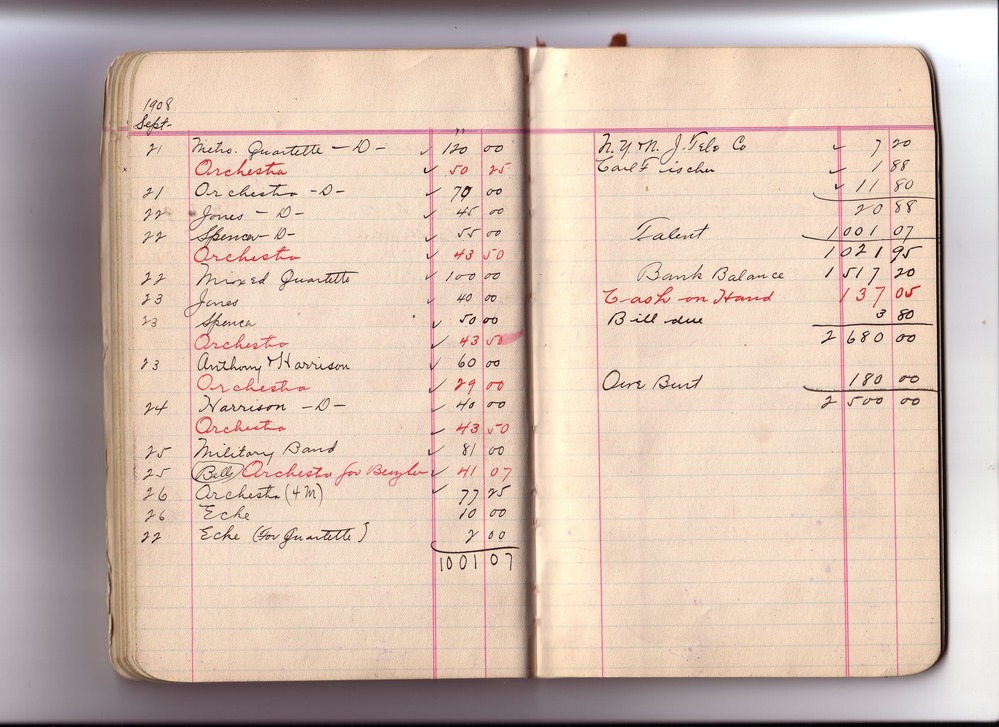 1908
Sept-
21 Metro. Quartette - D - ✓ 120 00
Orchestra ✓ 50 25
21 Orchestra - D - ✓ 70 00
22 Jones - D - ✓ 45 00
22 Spencer D - ✓ 55 00
Orchestra ✓ 43 50
22 Mixed Quartette ✓ 100 00
23 Jones ✓ 40 00
23 Spencer ✓ 50 00
Orchestra ✓ 43 50
23 Anthony & Harrison ✓ 60 00
Orchestra ✓ 29 00
24 Harrison - D - ✓ 40 00
Orchestra ✓ 43 50
25 Military Band ✓ 81 00
25 (Bells) Orchestra for Benzler ✓ 41 07
26 Orchestra (4 M) ✓ 77 25
26 Ecke 10 00
22 Ecke (for Quartette) 2 00
1001 07
N.Y & N.J. Tele Co ✓ 7 20
Carl Fischer ✓ 1 88
✓ 11 80
20 88
Talent 1001 07
1021 95
Bank Balance 1517 20
Cash on Hand 137 05
Bill due 3 80
2680 00
180 00
2500 00